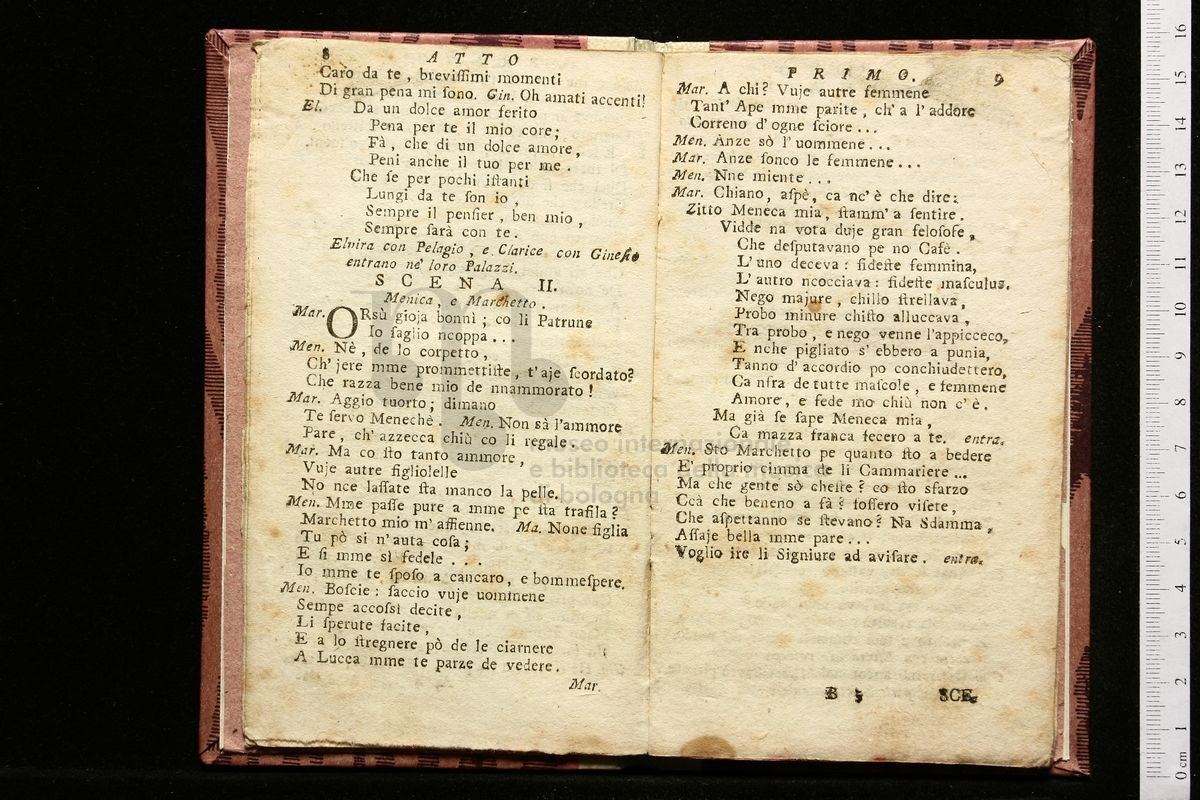 8 ATTO
Caro da te, breviſſimi momenti
Di gran pena mi ſono. Gin. Oh amati accenti!
El. Da un dolce amor ferito
Pena per te il mio core;
Fà, che di un dolce amore,
Peni anche il tuo per me.
Che ſe per pochi iſtanti
Lungi da te ſon io,
Sempre il penſier, ben mio,
Sempre ſarà con te.
Elvira con Pelagio, e Clarice con Gineſio
entrano ne' loro Palazzi.
SCENA II.
Menica, e Marchetto.
Mar. ORsù gioja bonnì; co li Patrune
Io ſaglio ncoppa...
Men. Nè, de lo corpetto,
Ch' jere mme prommettiſte, t' aje ſcordato?
Che razza bene mio de nnammorato!
Mar. Aggio tuorto; dimano
Te ſervo Menechè. Men. Non sà l'ammore
Pare, ch' azzecca chiù co li regale.
Mar. Ma co ſto tanto ammore,
Vuje autre figliolelle
No nce laſſate ſta manco la pelle.
Men. Mme paſſe pure a mme pe ſta trafila?
Marchetto mio m' affienne. Ma. None figlia
Tu pò si n' auta coſa;
E ſi mme sì fedele...
Io mme te ſpoſo a cancaro, e bommeſpere.
Men. Boſcie: ſaccio vuje uommene
Sempe accoſsì decite,
Li ſperute facite,
E a lo ſtregnere pò de le ciarnere
A Lucca mme te parze de vedere.
Mar.
PRIMO. 9
Mar. A chi? Vuje autre femmene
Tant' Ape mme parite, ch' a l' addore
Correno d' ogne ſciore...
Men. Anze sò l' uommene...
Mar. Anze ſonco le femmene...
Men. Nne miente...
Mar. Chiano, aſpè, ca nc' è che dire:
Zitto Meneca mia, ſtamm' a ſentire.
Vidde na vota duje gran feloſofe,
Che deſputavano pe no Cafè.
L' uno deceva: fideſte femmina,
L' autro ncocciava: fideſte maſculus.
Nego majure, chillo ſtrellava,
Probo minure chiſto alluccava,
Tra probo, e nego venne l'appicceco,
E nche pigliato s' ebbero a punia,
Tanno d' accordio po conchiudettero,
Ca nfra de tutte maſcole, e femmene
Amore, e fede mo chiù non c' è.
Ma già ſe ſape Meneca mia,
Ca mazza franca fecero a te. entra.
Men. Sto Marchetto pe quanto ſto a bedere
E' proprio cimma de li Cammariere...
Ma che gente sò cheſte? co ſto sfarzo
Ccà che beneno a fà? foſſero viſete,
Che aſpettanno se ſtevano? Na Sdamma,
Aſſaje bella mme pare...
Voglio ire li Signiure ad aviſare. entra.
B 5 SCE-
museo internazionale
e biblioteca della musica
di bologna
16
15
14
13
12
11
10
9
8
7
6
5
4
3
2
1
0 cm